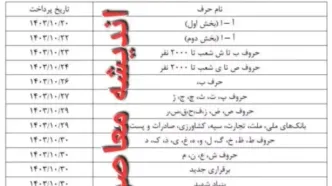 نام حرف تاریخ پرداخت
آ – ا (بخش اول) ۱۴۰۳/۱۰/۲۰
آ – ا (بخش دوم) ۱۴۰۳/۱۰/۲۲
حروف ب تا ش شعب تا ۲۰۰۰ نفر ۱۴۰۳/۱۰/۲۳
حروف ص تا ی شعب تا ۲۰۰۰ نفر ۱۴۰۳/۱۰/۲۴
حرف ب، ۱۴۰۳/۱۰/۲۶
حروف پ، ت، ث، چ، ج، ژ ۱۴۰۳/۱۰/۲۷
حروف ص، ض، ز، ف، ح، ق، س، ر ۱۴۰۳/۱۰/۲۹
بانک‌های ملی، ملت، تجارت، سپه، کشاورزی، صادرات و پست ۱۴۰۳/۱۰/۲۹
حروف ط، ظ، خ، گ، ل، و، ه، ع، ی، ذ، ک، د ۱۴۰۳/۱۰/۳۰
حروف ش، غ، ن، م ۱۴۰۳/۱۰/۳۰
برقراری جدید ۱۴۰۳/۱۰/۳۰
بنیاد شهید ۱۴۰۳/۱۰/۳۰
اندیشه معاصر